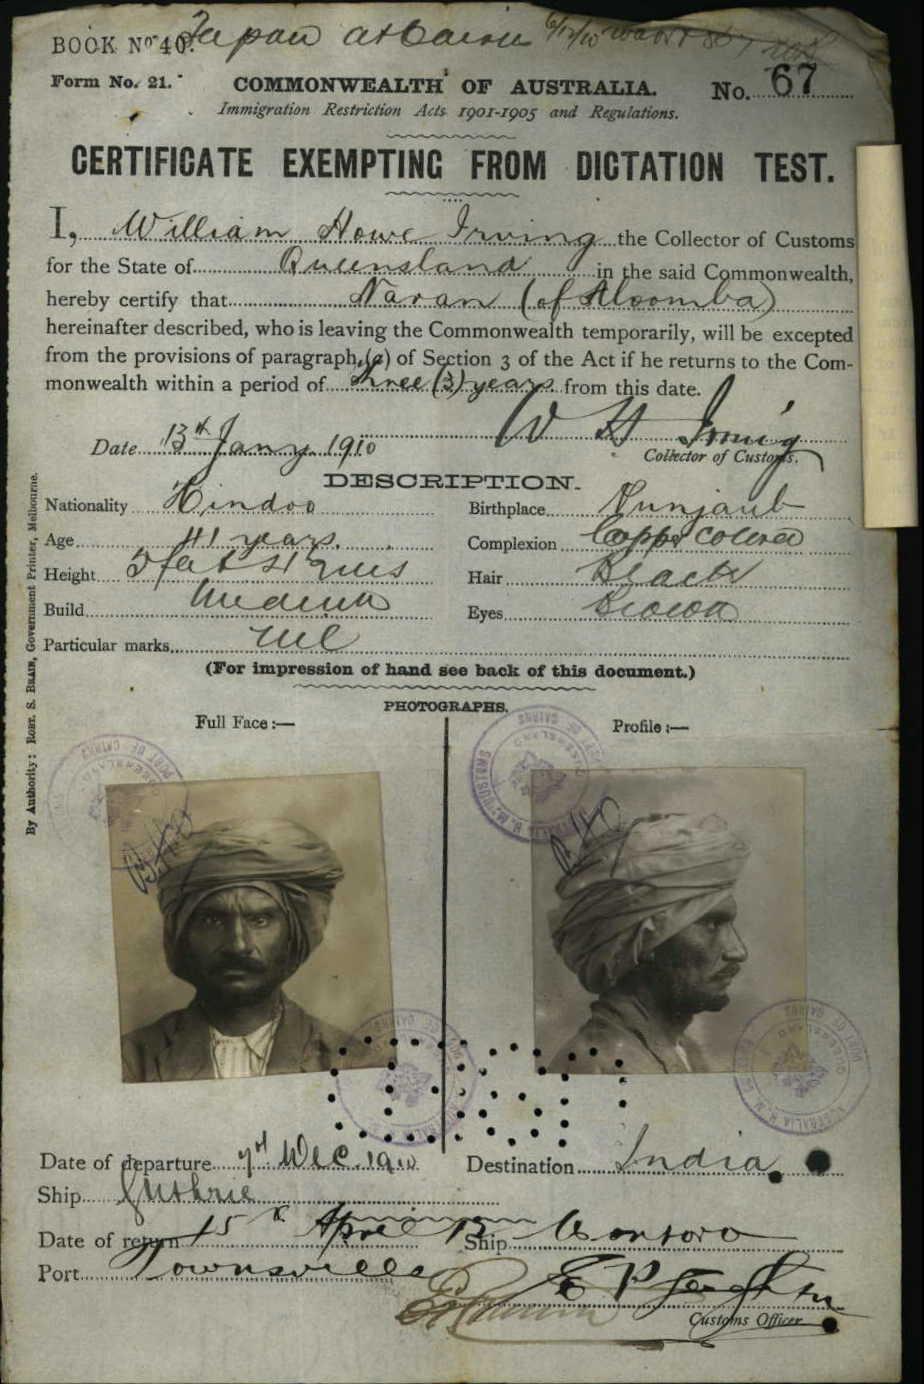 BOOK No 40.
Japan at Cairns 6/12/10
Form No. 21.
COMMONWEALTH OF AUSTRALIA.
No. 67
Immigration Restriction Acts 1901-1905 and Regulations.
CERTIFICATE EXEMPTING FROM DICTATION TEST.
I, William Howe Irving the Collector of Customs
for the State of Queensland in the said Commonwealth,
hereby certify that Naran (of Aloomba)
hereinafter described, who is leaving the Commonwealth temporarily, will be excepted
from the provisions of paragraph (a) of Section 3 of the Act if he returns to the Com-
monwealth within a period of three (3) years from this date.
W H Irving
Date 13th Jany 1910
Collector of Customs.
DESCRIPTION.
Nationality Hindoo
Birthplace Punjaub
Age 41 years.
Complexion Copper colored
Height 5 feet 4½ ins
Hair Black
Build Medium
Eyes Brown
Particular marks nil
(For impression of hand see back of this document.)
PHOTOGRAPHS.
Full Face:—
Profile:—
By Authority: ROBT. S. BRAIN, Government Printer, Melbourne.
PORT OF CAIRNS
QUEENSLAND
H.M. CUSTOMS AUSTRALIA
Date of departure 7th Dec. 1910
Destination India
Ship Guthrie
Date of return 15th April 13
Ship
Port Townsville
Customs Officer